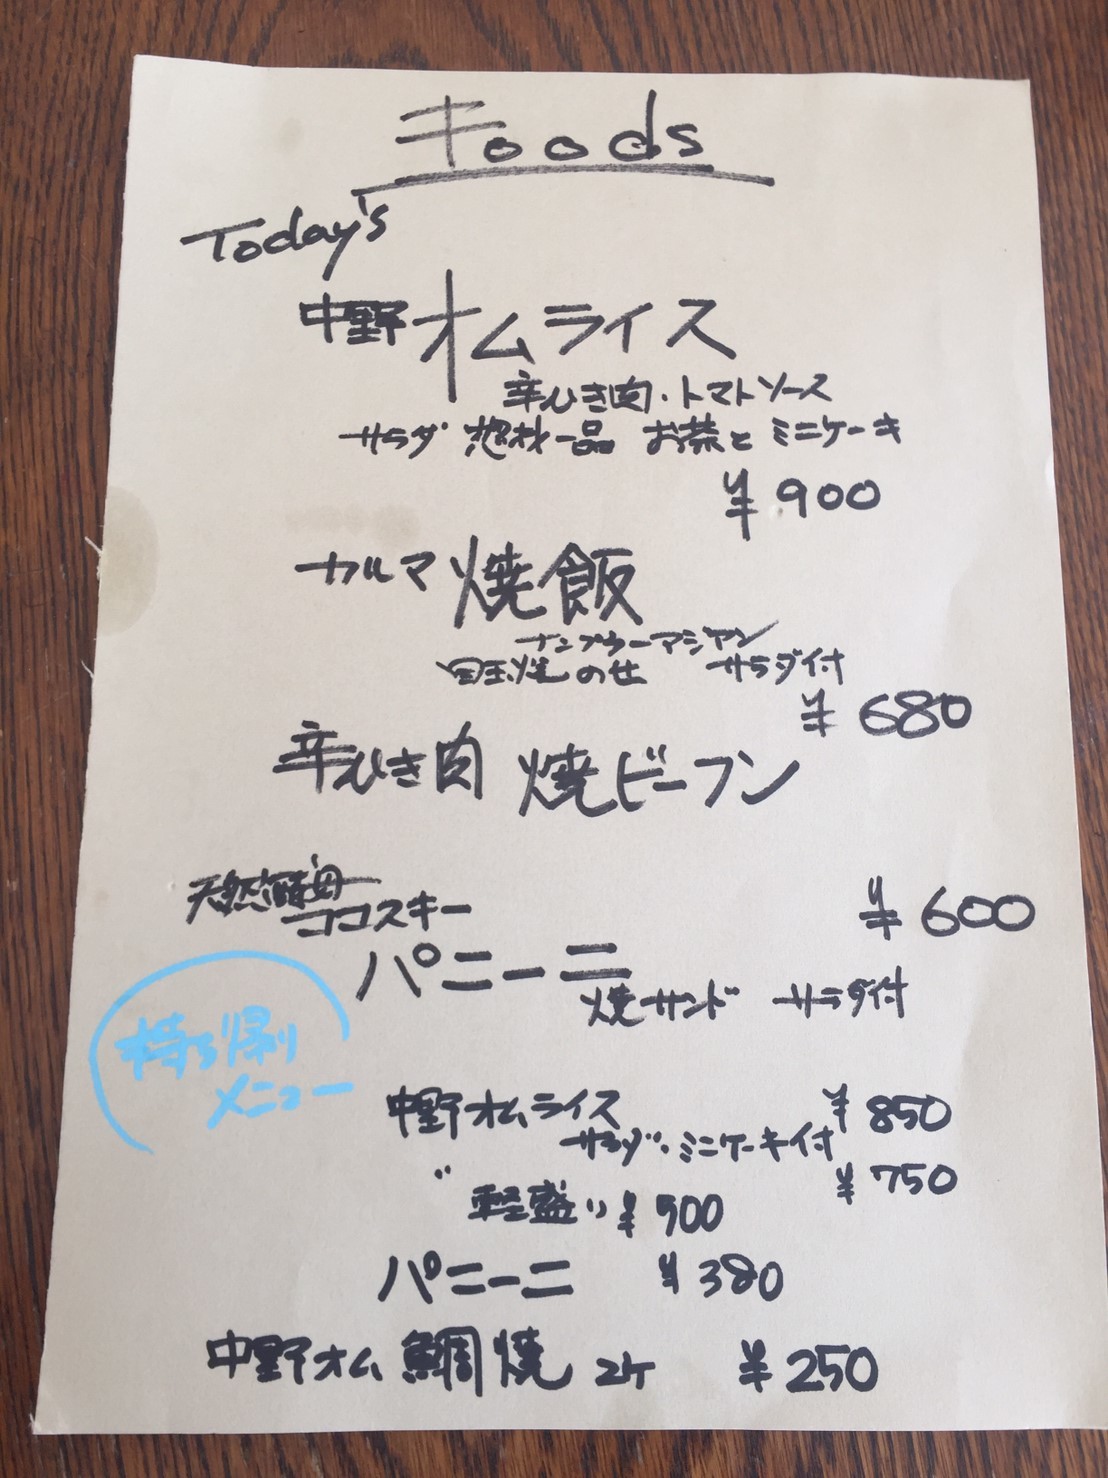 Foods
Today's
中野オムライス
辛ひき肉・トマトソース
サラダ 惣材一品 お茶とミニケーキ
¥900
カルマ 焼飯
ナンプラーマジヤン
目玉焼のせ サラダ付
¥680
辛ひき肉 焼ビーフン
天然酵母
ココスキー
¥600
パニーニ
焼サンド サラダ付
持ち帰り
メニュー
中野オムライス ¥850
サラダ・ミニケーキ付
¥750
〃 軽盛り ¥500
パニーニ ¥380
中野オム 鯛焼 2ケ ¥250